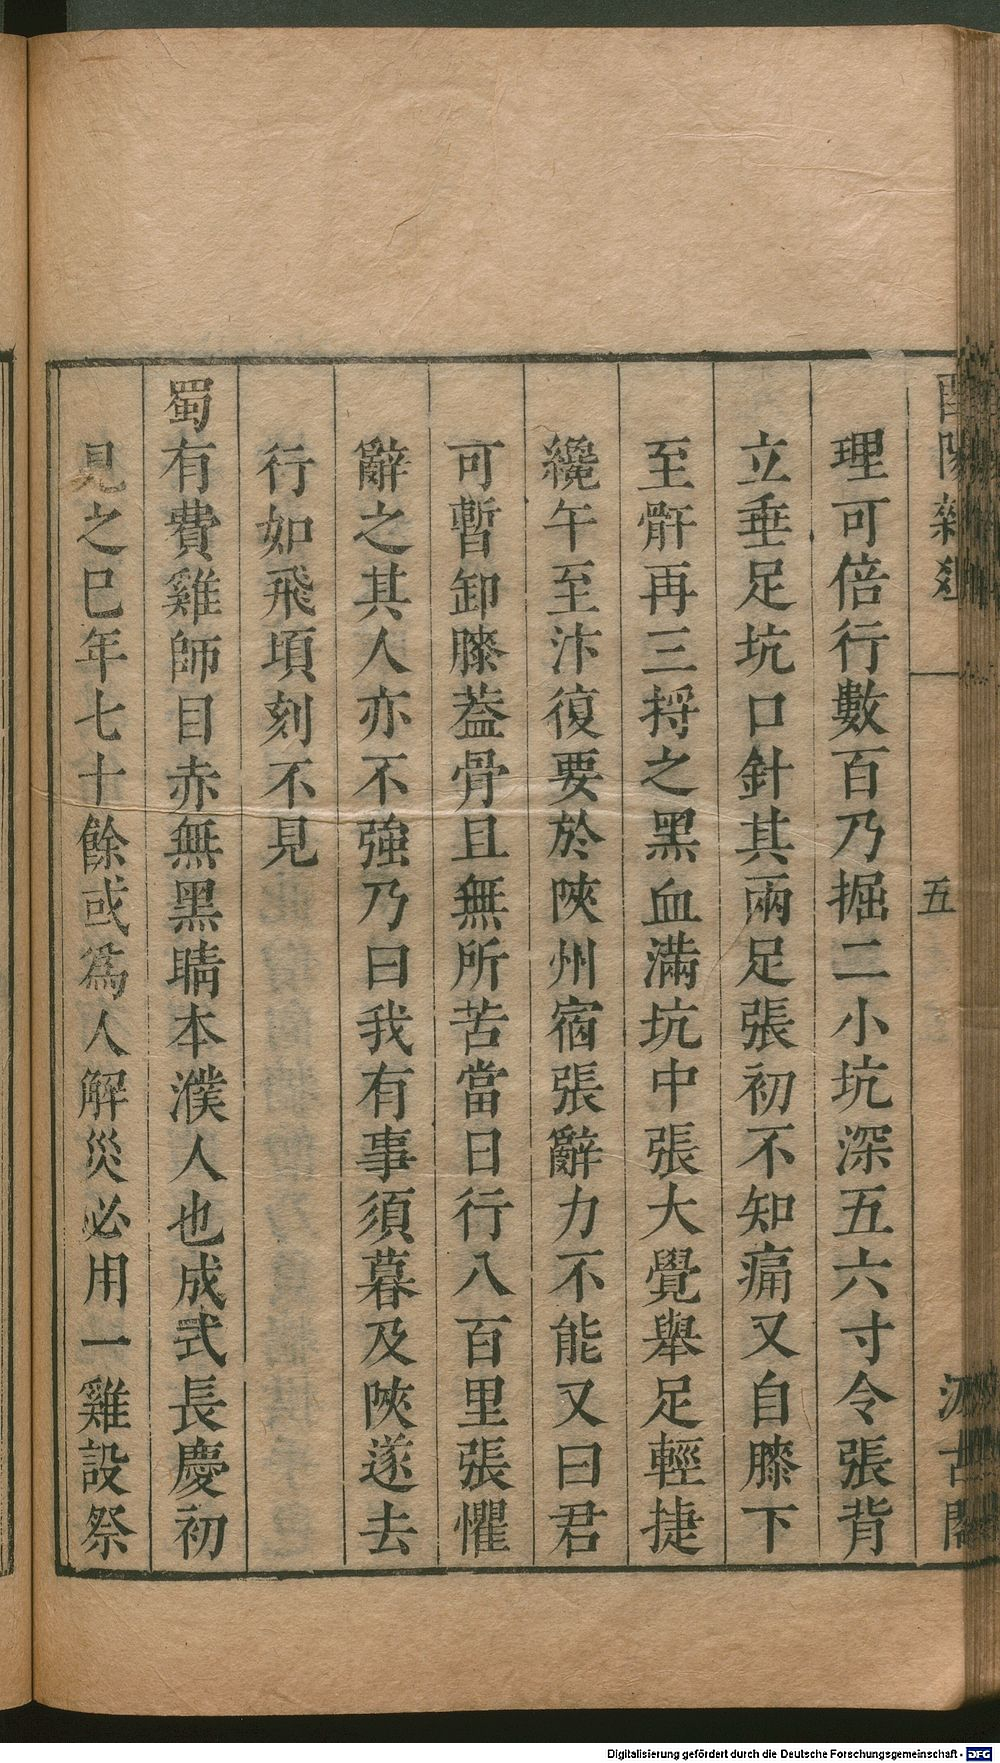 酉陽雜俎
五
汲古閣
理可倍行數百乃掘二小坑深五六寸令張背
立垂足坑口針其兩足張初不知痛又自膝下
至骭再三捋之黑血滿坑中張大覺舉足輕捷
纔午至汴復要於陝州宿張辭力不能又曰君
可暫卸膝蓋骨且無所苦當日行八百里張懼
辭之其人亦不強乃曰我有事須暮及陝遂去
行如飛頃刻不見
蜀有費雞師目赤無黑睛本濮人也成式長慶初
見之巳年七十餘或爲人解災必用一雞設祭
Digitalisierung gefördert durch die Deutsche Forschungsgemeinschaft - DFG